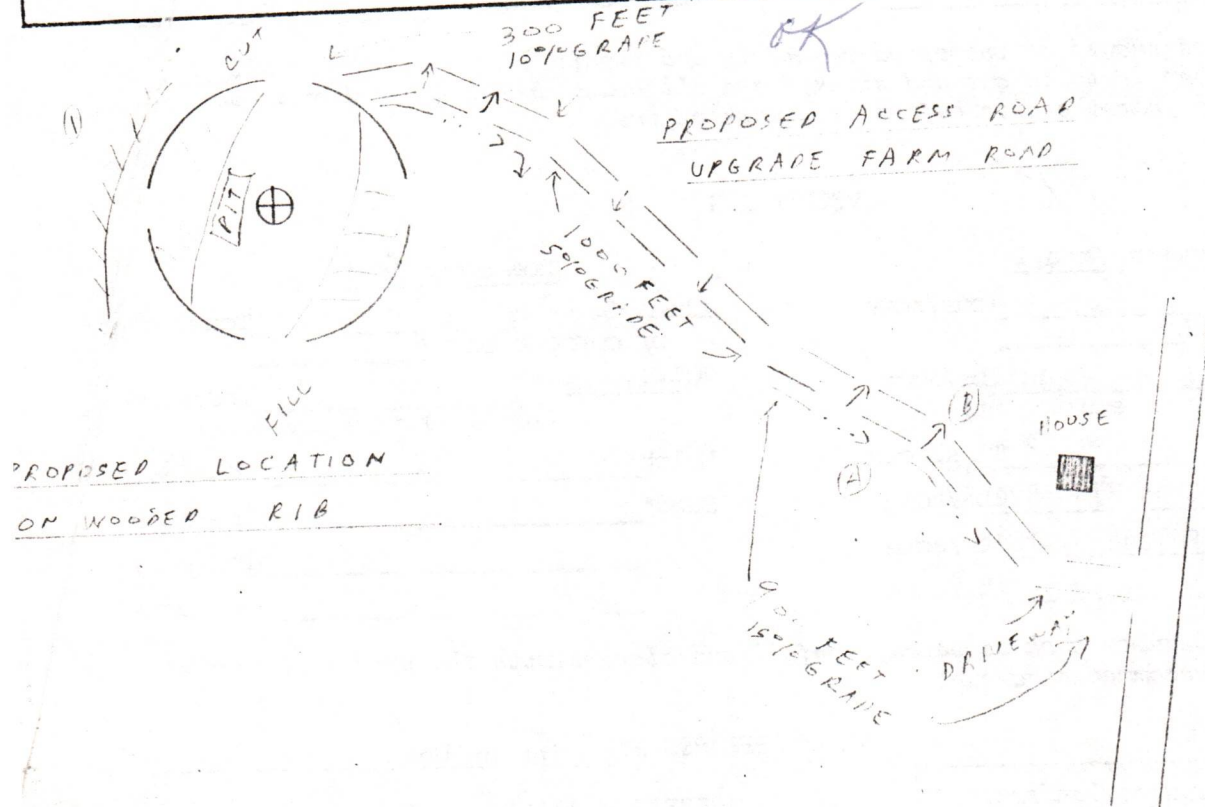 300 FEET
10% GRADE
OK
CUT
1
PROPOSED ACCESS ROAD
UPGRADE FARM ROAD
PIT
1000 FEET
5% GRADE
B
HOUSE
FILL
PROPOSED LOCATION
ON WOODED RIB
A
900 FEET
15% GRADE
DRIVEWAY